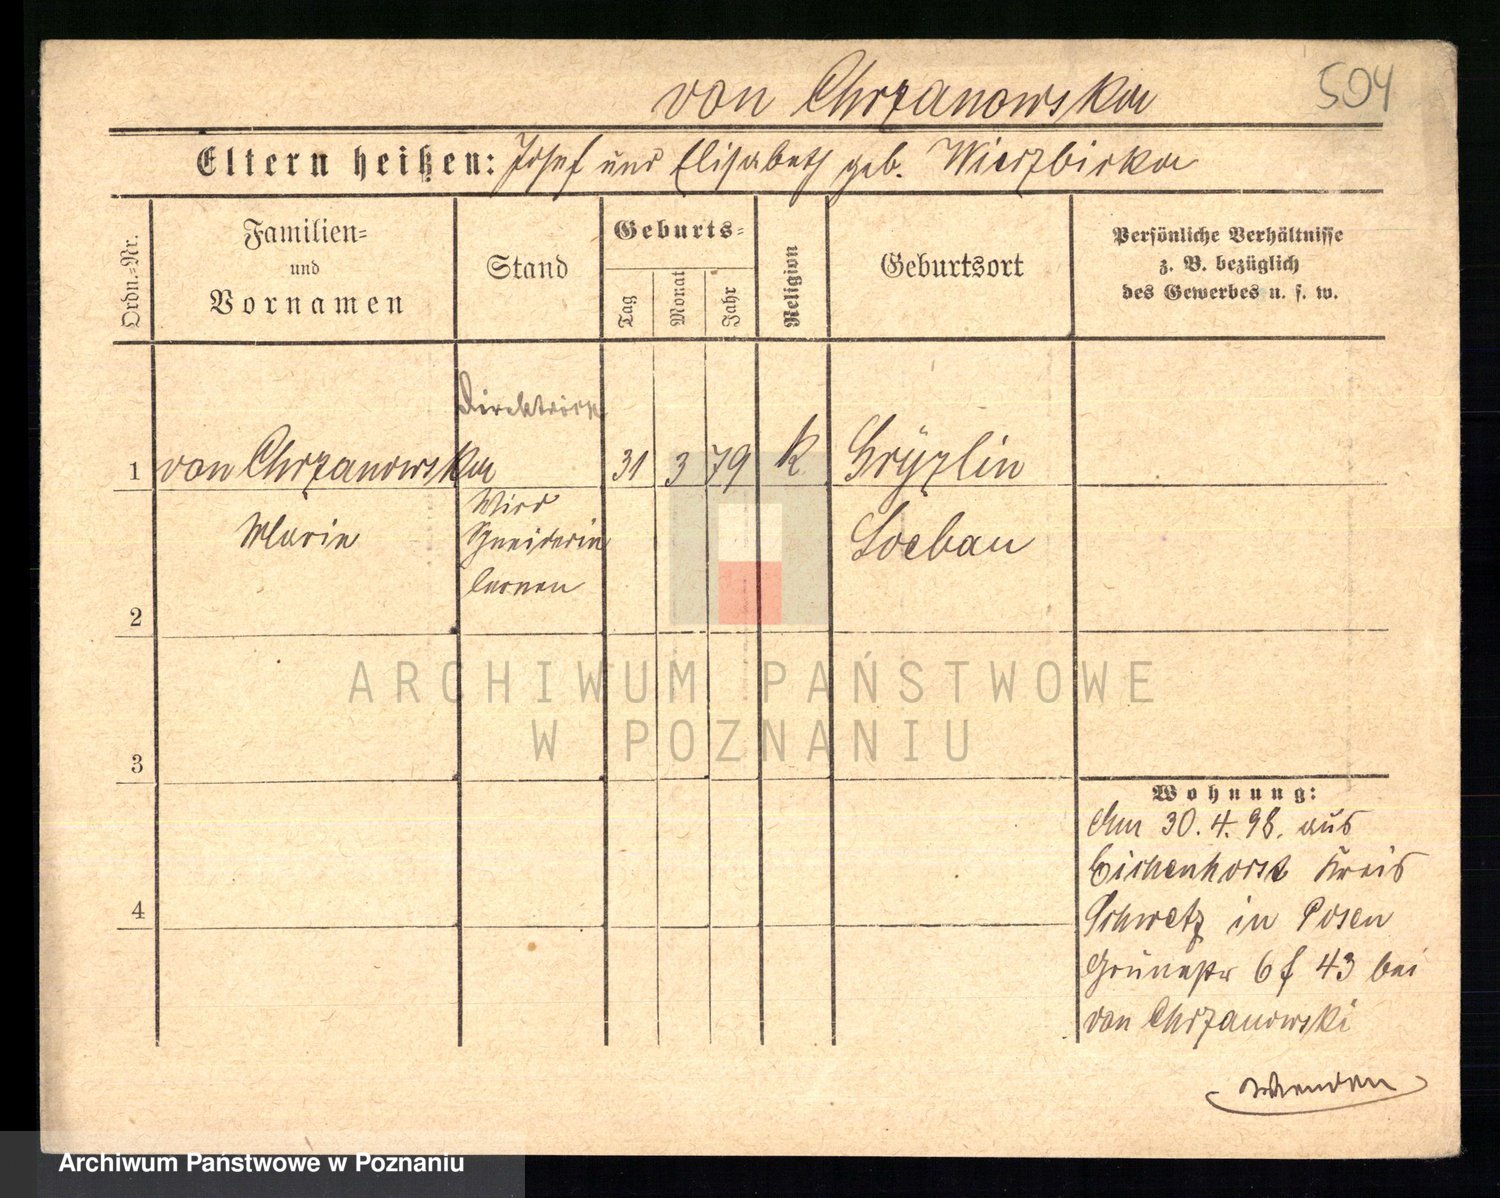 von Chrzanowska
504
Eltern heißen: Josef und Elisabeth geb. Wierzbicka
Ordn.=Nr.
Familien=
und
Vornamen
Stand
Geburts=
Tag
Monat
Jahr
Religion
Geburtsort
Persönliche Verhältnisse
z. B. bezüglich
des Gewerbes u. s. w.
Direktrice
1 von Chrzanowska 31 3 79 k Gryzlin
Marie
Wird
Schneiderin
lernen
Loebau
2
3
4
Wohnung:
Am 30.4.98. aus
Eichenhorst Kreis
Schwetz in Posen
Grünestr 6 43 bei
von Chrzanowski
Wenden
ARCHIWUM PAŃSTWOWE
W POZNANIU
Archiwum Państwowe w Poznaniu